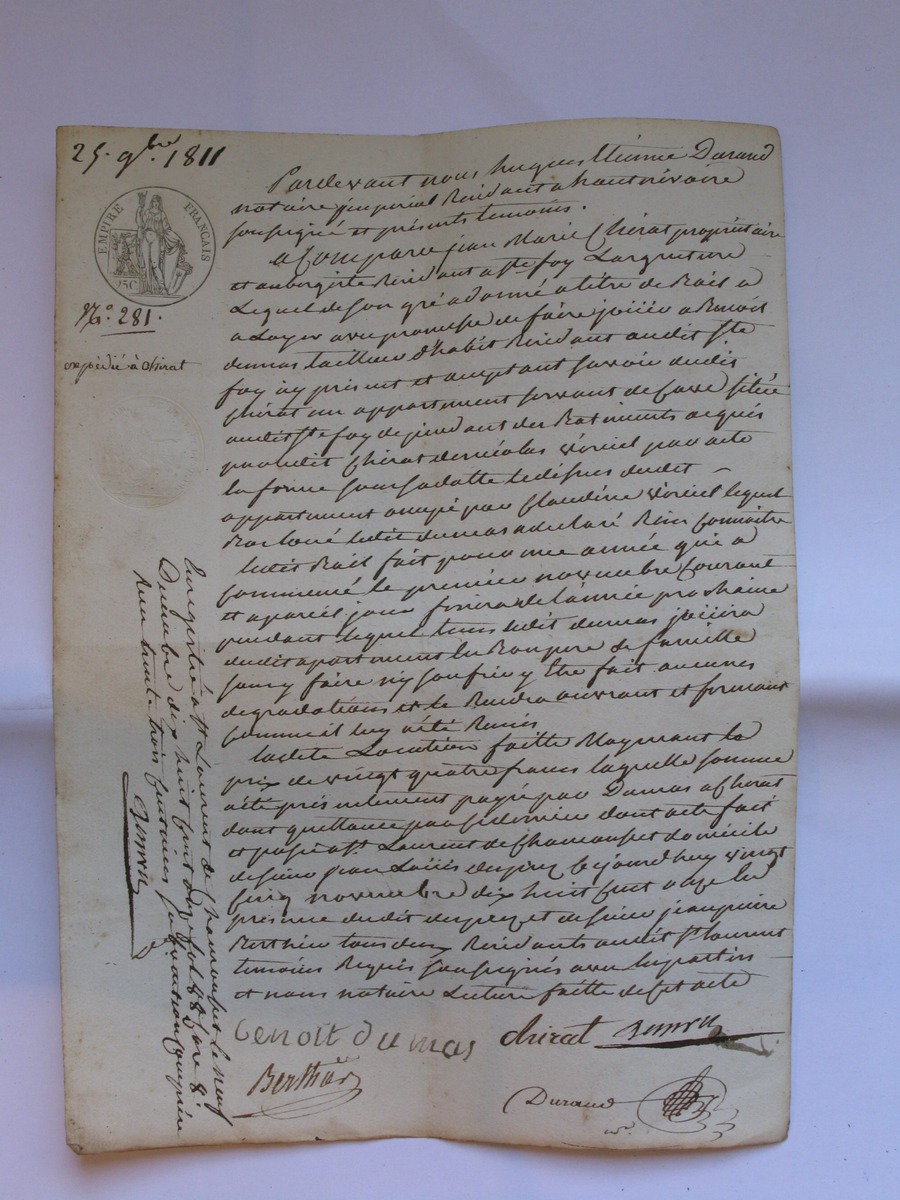 25. 9bre. 1811
EMPIRE FRANÇAIS
25 C
No. 281.
expédié à Chirat
Pardevant nous hugues Etienne Durand
notaire jmperial Residant a haut rivoire
soussigné et présents temoins.
a Comparu jean Marie Chirat propriétaire
et aubergiste Residant a Ste foy Largentiere
Lequel de son gré a donné a titre de Bail a
a Loyer avec promesse de faire jouir a Benoit
dumas tailleur d'habit Residant audit Ste
foy icy présent et acceptant savoir dudit
Chirat un appartement servant de Cave située
audit Ste foy dependant des Batiments acquis
par ledit Chirat de nicolas par acte
la forme sous sa datte dudit
appartement occupé par Claudine lequel
ledit dumas a declaré Bien Connoitre
Ledit Bail fait pour une année qui a
Commencé le premier novembre Courant
et a pareil jour finira de l'année prochaine
pendant lequel tems ledit dumas jouira
dudit apartement en Bon pere de famille
sans y faire ny soufrir y etre fait aucunes
degradations et le Rendra ouvrant et fermant
Comme il luy a été Remis
Ladite Location faitte Moyenant le
prix de vingt quatre francs laquelle somme
a été présentement payée par Dumas a Chirat
dont quittance par ce dernier dont acte fait
et passé a St. Laurent de Chamousset domicile
de sieur jean Louis dupuy Cejourd'huy vingt
Cinq novembre dix huit Cent onze En
présence dudit dupuy et de sieur jean pierre
Berthier tous deux Residants audit St. Laurent
temoins Requis soussignés avec les parties
et nous notaire Lecture faitte de Cet acte
Benoit Dumas Chirat
Durand
Enregistré a St. Laurent de Chamousset le neuf
Decembre dix huit Cent onze fol. 88 Case 8.
Reçu trente trois Centimes